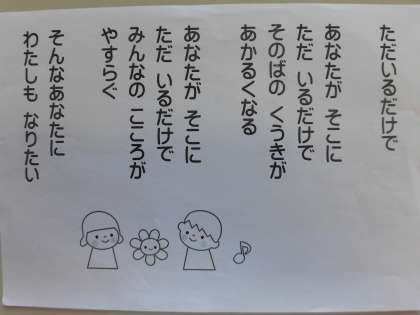 ただいるだけで
あなたが そこに
ただ いるだけで
そのばの くうきが
あかるくなる
あなたが そこに
ただ いるだけで
みんなの こころが
やすらぐ
そんなあなたに
わたしも なりたい